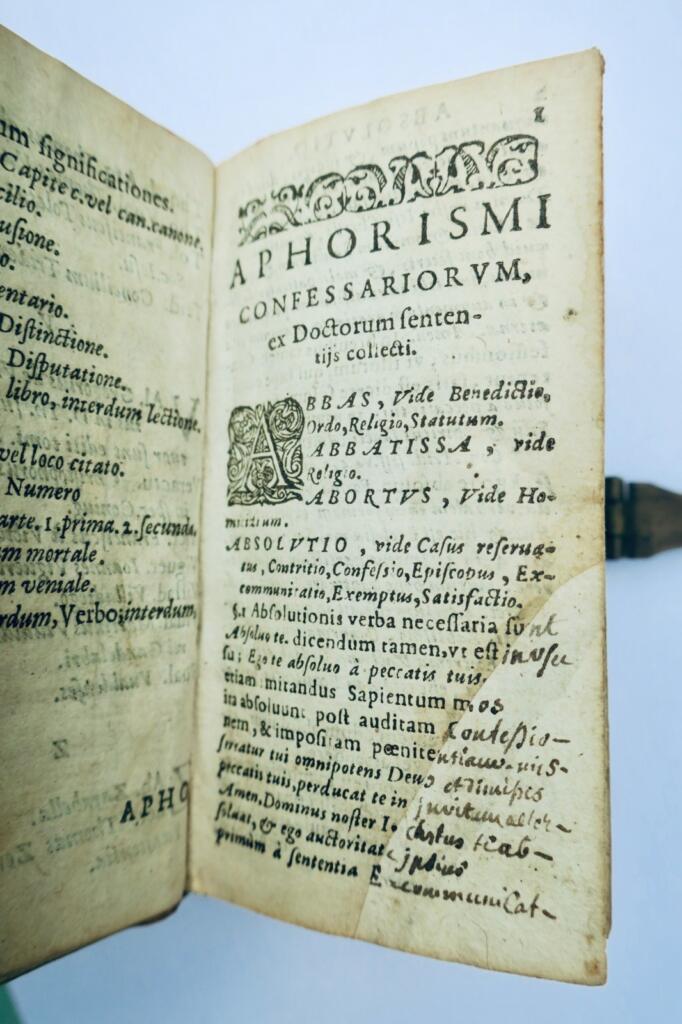 um significationes.
Capite c. vel can. canone.
cilio.
usione.
o.
entario.
Distinctione.
Disputatione.
libro, interdum lectione.
vel loco citato.
Numero
arte. 1. prima. 2. secunda.
m mortale.
m veniale.
rdum, Verbo, interdum,
APHO
1
APHORISMI
CONFESSARIORVM,
ex Doctorum senten-
tijs collecti.
ABBAS, Vide Benedictio,
Ordo, Religio, Statutum.
ABBATISSA, vide
Religio.
ABORTVS, Vide Ho-
micidium.
ABSOLVTIO, vide Casus reserua-
tus, Contritio, Confessio, Episcopus, Ex-
communicatio, Exemptus, Satisfactio.
§.1 Absolutionis verba necessaria sunt
Absoluo te. dicendum tamen, vt est in usu
Ego te absoluo à peccatis tuis.
etiam mitandus Sapientum mos
ita absoluunt post auditam Confessio-
nem, & impositam pœnitentiam. Mis-
seratur tui omnipotens Deus et dimissis
peccatis tuis, perducat te in
Amen. Dominus noster I. Christus te ab-
soluat, & ego auctoritate ipsius
primùm à sententia Excommunicat-